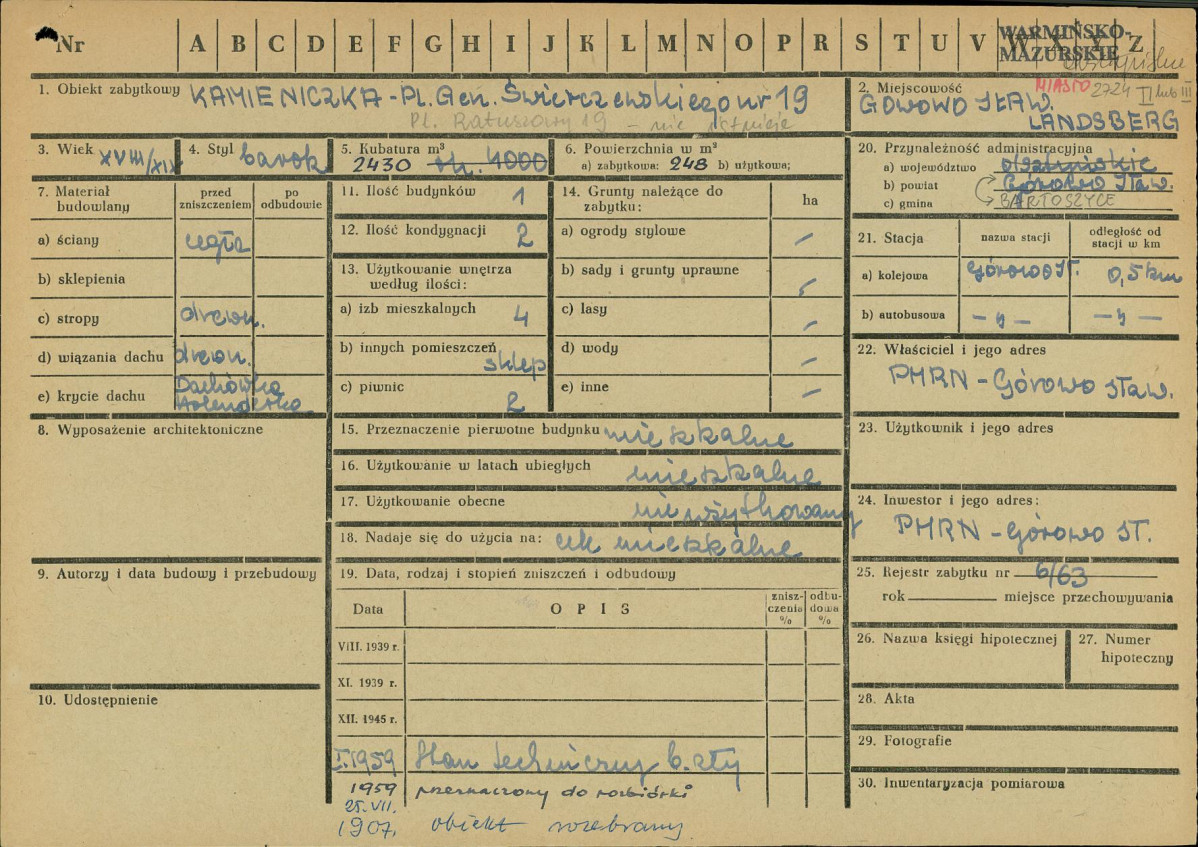 Nr A B C D E F G H I J K L M N O P R S T U V W X Y Z
WARMIŃSKO-
MAZURSKIE
1. Obiekt zabytkowy KAMIENICZKA - Pl. Gen. Świerczewskiego nr 19
Pl. Ratuszowy 19 - nie istnieje
2. Miejscowość MIASTO 2724 II lub III
GOWOWO IŁAW.
LANDSBERG
3. Wiek XVIII/XIX
4. Styl barok
5. Kubatura m³
2430 ok. 4000
6. Powierzchnia w m²
a) zabytkowa: 248 b) użytkowa;
20. Przynależność administracyjna
a) województwo olsztyńskie
b) powiat Górowo Iław.
c) gmina BARTOSZYCE
7. Materiał budowlany
przed zniszczeniem
po odbudowie
a) ściany cegła
b) sklepienia
c) stropy drewn.
d) wiązania dachu drewn.
e) krycie dachu Dachówka
Holenderka
11. Ilość budynków 1
12. Ilość kondygnacji 2
13. Użytkowanie wnętrza
według ilości:
a) izb mieszkalnych 4
b) innych pomieszczeń sklep
c) piwnic 2
14. Grunty należące do
zabytku:
ha
a) ogrody stylowe -
b) sady i grunty uprawne -
c) lasy -
d) wody -
e) inne -
21. Stacja
nazwa stacji
odległość od
stacji w km
a) kolejowa Górowo Ił. 0,5 km
b) autobusowa - " - - " -
22. Właściciel i jego adres
PMRN - Górowo Iław.
8. Wyposażenie architektoniczne
15. Przeznaczenie pierwotne budynku mieszkalne
16. Użytkowanie w latach ubiegłych mieszkalne
17. Użytkowanie obecne nieużytkowany
18. Nadaje się do użycia na: cele mieszkalne
23. Użytkownik i jego adres
24. Inwestor i jego adres:
PMRN - Górowo Ił.
9. Autorzy i data budowy i przebudowy
19. Data, rodzaj i stopień zniszczeń i odbudowy
Data
OPIS
znisz-
czenia
%
odbu-
dowa
%
VIII. 1939 r.
XI. 1939 r.
XII. 1945 r.
I. 1959 Stan techniczny b. zły
1959 przeznaczony do rozbiórki
25. VII.
1907. obiekt rozebrany
25. Rejestr zabytku nr 6/63
rok miejsce przechowywania
26. Nazwa księgi hipotecznej
27. Numer
hipoteczny
10. Udostępnienie
28. Akta
29. Fotografie
30. Inwentaryzacja pomiarowa